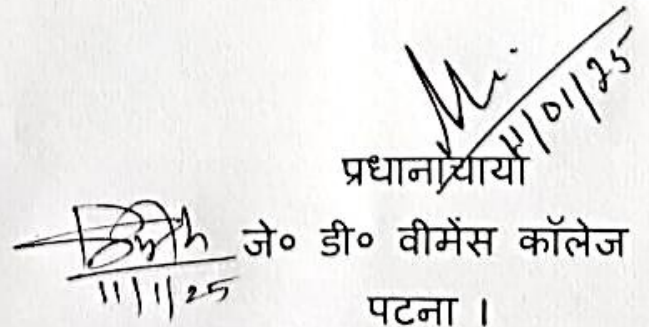 11/01/25
प्रधानाचार्या
11/1/25 जे० डी० वीमेंस कॉलेज
पटना ।